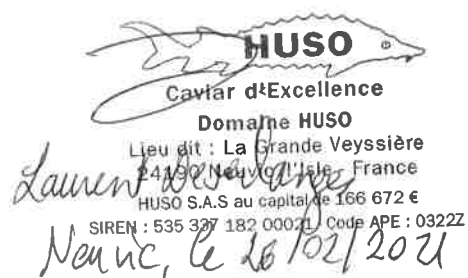 HUSO
Caviar d'Excellence
Domaine HUSO
Lieu dit : La Grande Veyssière
24190 Neuvic l'Isle - France
HUSO S.A.S au capital de 166 672 €
Laurent
SIREN : 535 337 182 00021 Code APE : 0322Z
Neuvic, le 26/02/2021